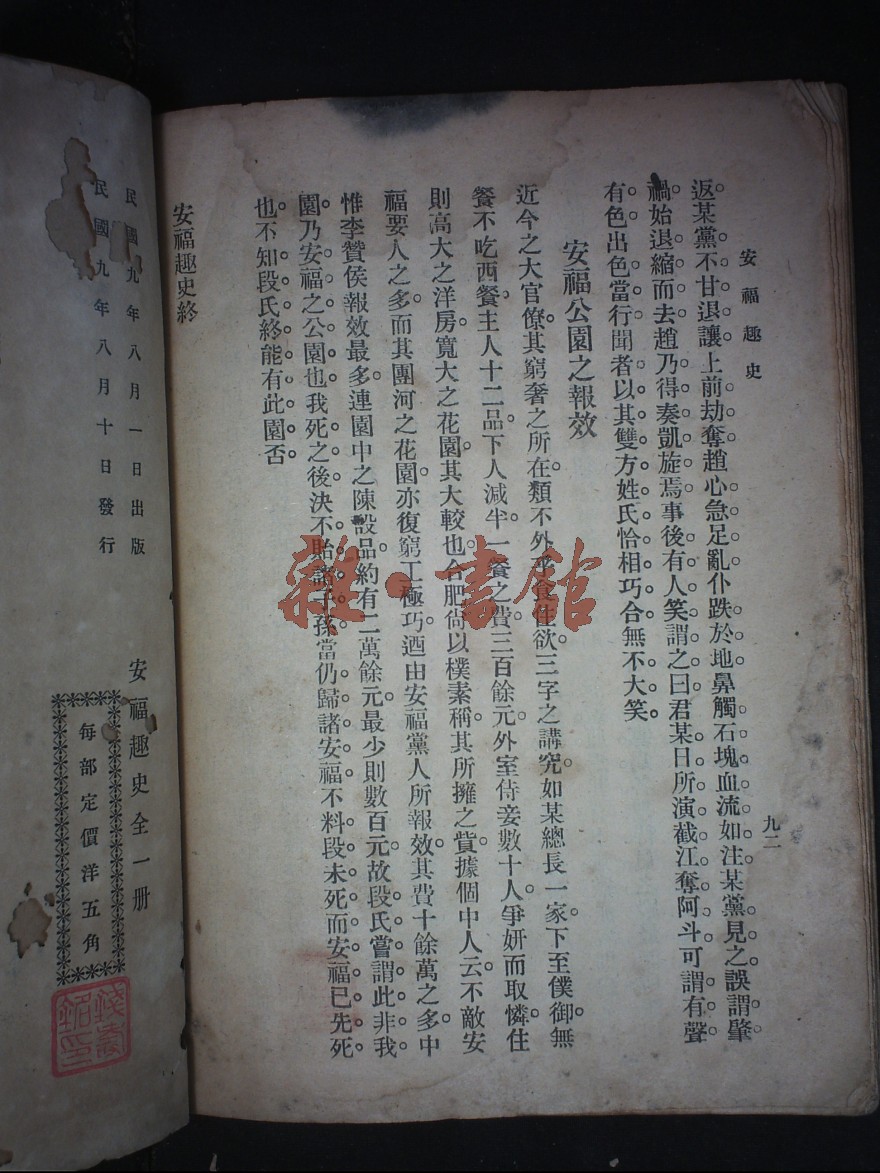 安福趣史
九二
返某黨不甘退讓上前劫奪趙心急足亂仆跌於地鼻觸石塊血流如注某黨見之誤謂肇
禍始退縮而去趙乃得奏凱旋焉事後有人笑謂之曰君某日所演截江奪阿斗可謂有聲
有色出色當行聞者以其雙方姓氏恰相巧合無不大笑。
安福公園之報效
近今之大官僚其窮奢之所在類不外乎食住欲三字之講究如某總長一家下至僕御無
餐不吃西餐主人十二品下人減半一餐之費三百餘元外室侍妾數十人爭妍而取憐住
則高大之洋房寬大之花園其大較也合肥尙以樸素稱其所擁之貲據個中人云不敵安
福要人之多而其團河之花園亦復窮工極巧迺由安福黨人所報效其費十餘萬之多中
惟李贊侯報效最多連園中之陳設品約有二萬餘元最少則數百元故段氏嘗謂此非我
園乃安福之公園也我死之後決不貽諸子孫當仍歸諸安福不料段未死而安福已先死
也不知段氏終能有此園否。
安福趣史終
民國九年八月一日出版
民國九年八月十日發行
安福趣史全一册
每部定價洋五角
雜·書館